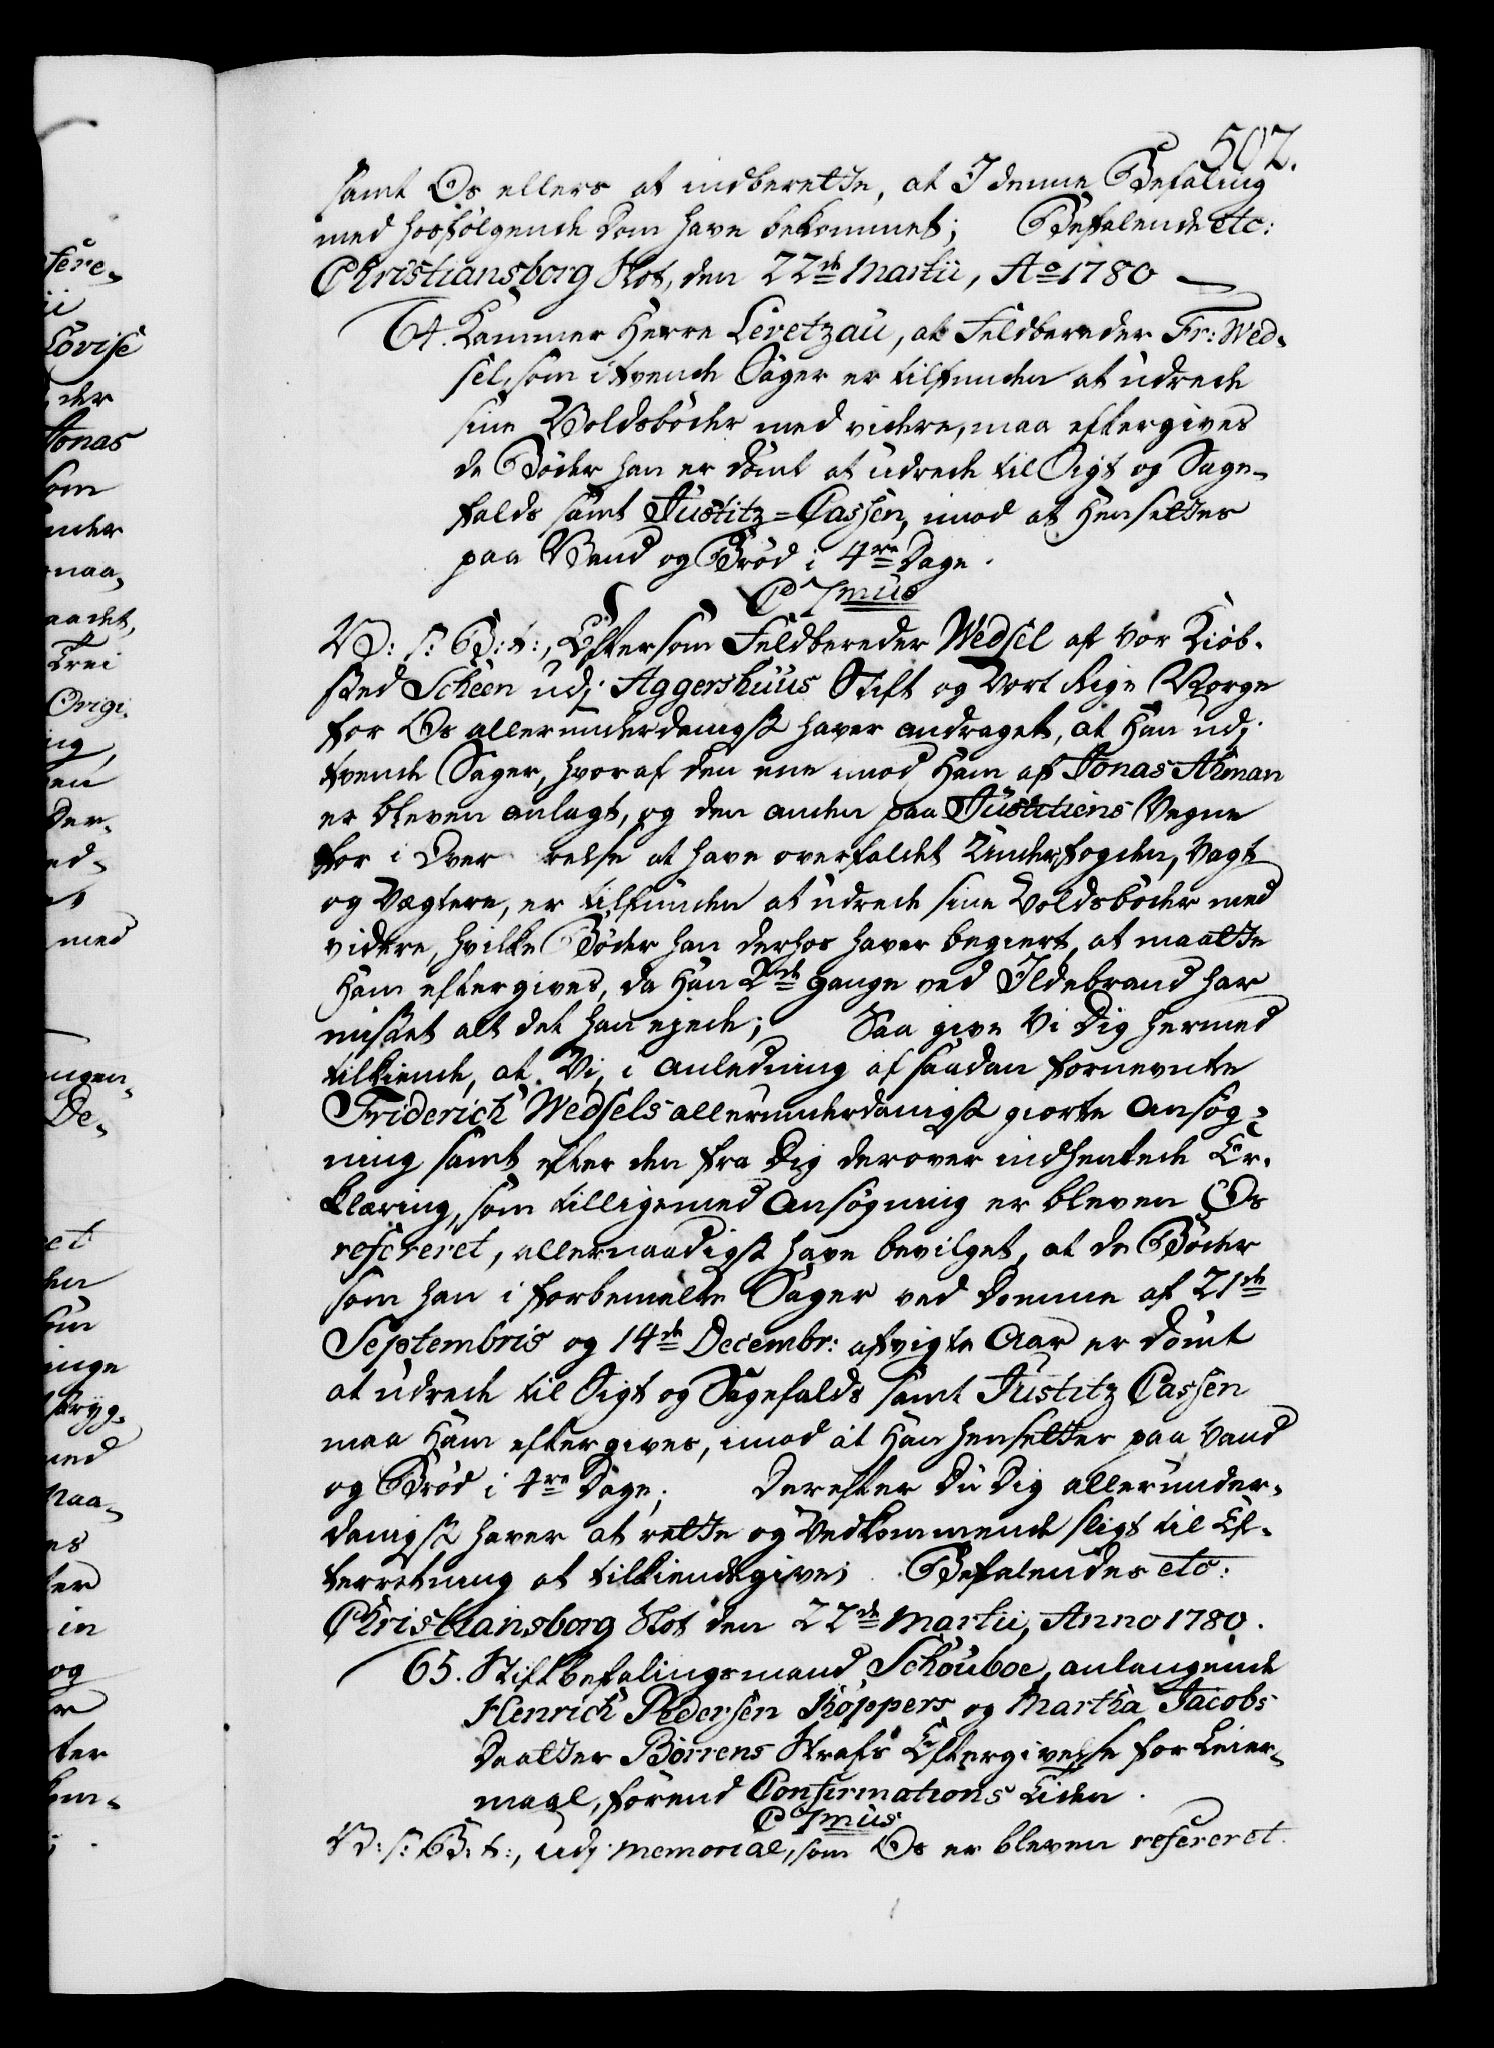 502.
samt Os ellers at indberette, at I denne Befaling
med hosfølgende Dom have bekommet; Befalende etc:
Christiansborg Slot, den 22de Martii, Ao 1780
64. Kammer Herre Levetzau, at Feldbereder Fr: Wed-
sel, som i tvende Sager er tilfunden at udrede
sine Voldsbøder med videre, maa eftergives
de Bøder han er dömt at udrede til Sigt og Sage-
falds samt Justitz-Cassen, imod at Hensettes
paa Vand og Brød i 4re Dage.
C 7mus
V: s: G: t:, Eftersom Feldbereder Wedsel af vor Kiöb-
sted Scheen udj Aggershuus Stift og Vort Rige Norge
for Os allerunderdanigst haver andraget, at Han udj
tvende Sager, hvoraf den ene imod Ham af Jonas Ahman
er bleven anlagt, og den anden paa Justitiens Vegne
for i Over relse at have overfaldet Underfogden, Vagt
og Vægtere, er tilfunden at udrede sine Voldsbøder med
videre, hvilke Bøder han derhos haver begiert, at maatte
Ham eftergives, da Han 2de Gange ved Ildebrand har
mistet alt det han ejede; Saa give Vi Dig hermed
tilkiende, at Vi, i Anledning af saadan fornevnte
Friderich Wedsels allerunderdanigst giorte Ansøg-
ning samt efter den fra Dig derover indhentede Er-
klæring, som tilligemed Ansøgning er bleven Os
refereret, allernaadigst have bevilget, at de Bøder
som han i forbemelte Sager ved Domme af 21de
Septembris og 14de Decembr: afvigte Aar er dömt
at udrede til Sigt og Sagefalds samt Justitz Cassen
maa Ham eftergives, imod at Han hensettes paa Vand
og Brød i 4re Dage; Derefter Du Dig allerunder-
danigst haver at rette og Vedkommende sligt til Ef-
terretning at tilkiendegive; Befalendes etc:
Christiansborg Slot den 22de Martii, Anno 1780.
65. Stiftbefalingsmand Schouboe, anlangende
Henrich Pedersen Köppers og Martha Jacobs
Daatter Börrens Strafs Eftergivelse for Leier-
maal, förend Confirmations Tiden.
C 7mus
V: s: G: t:, udj Memorial, som Os er bleven refereret